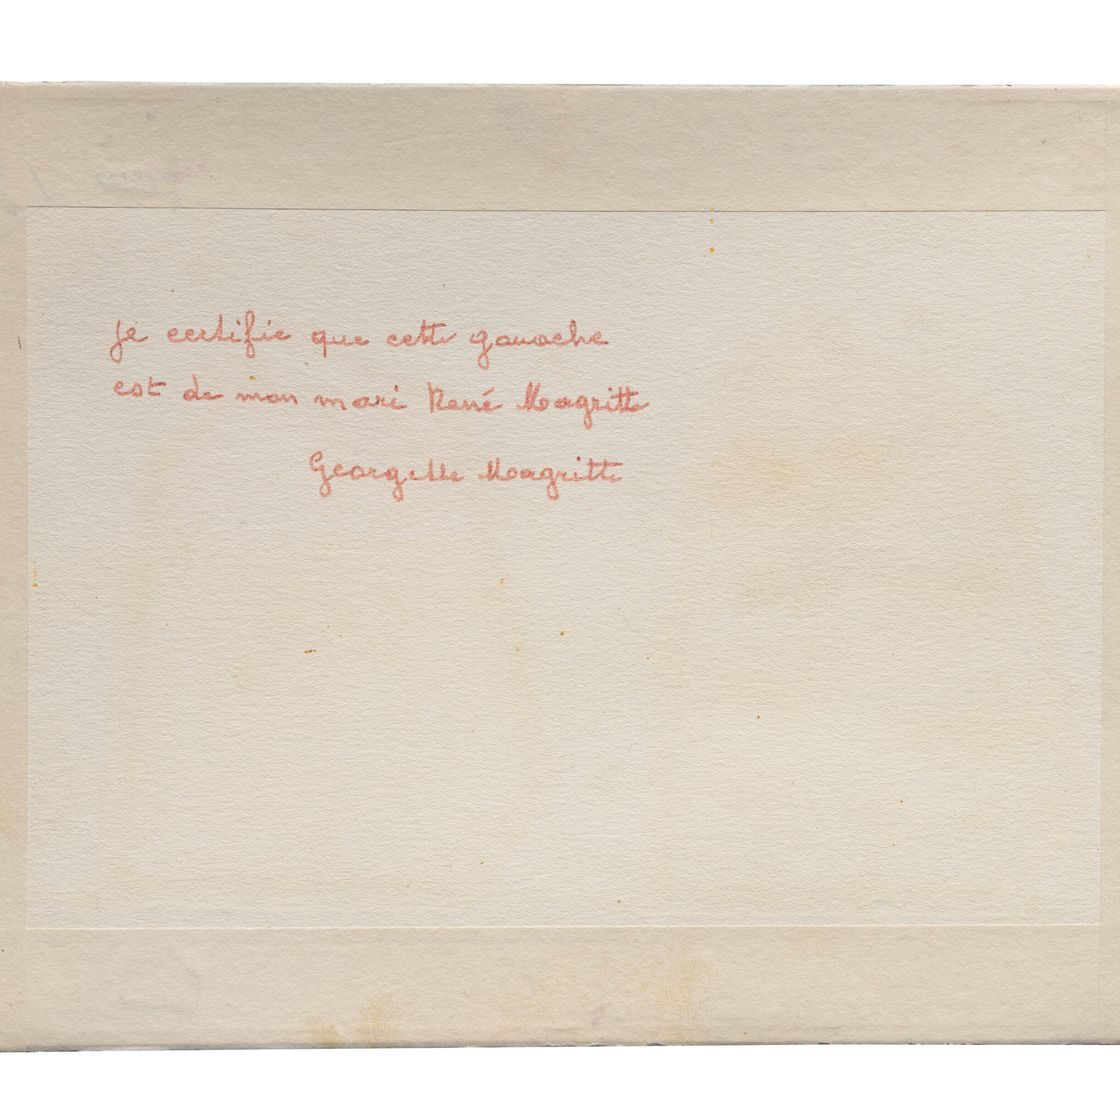 Je certifie que cette gouache
est de mon mari René Magritte
Georgette Magritte